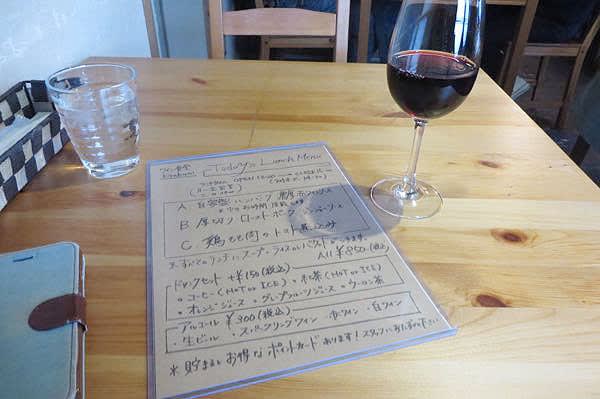 Today's Lunch Menu
OPEN
A ハンバーグ
B 厚切りローストポーク
C 鶏もも肉のトマト煮込み
※すべてのランチにスープ・ライス or
All ¥850(税込)
ドリンクセット +¥150(税込)
・コーヒー(HOT or ICE) ・紅茶(HOT or ICE)
・オレンジジュース ・グレープフルーツジュース ・ウーロン茶
アルコール ¥300(税込)
・生ビール ・スパークリングワイン ・赤ワイン ・白ワイン
＊貯まるとお得なポイントカードあります!スタッフにお尋ね下さい